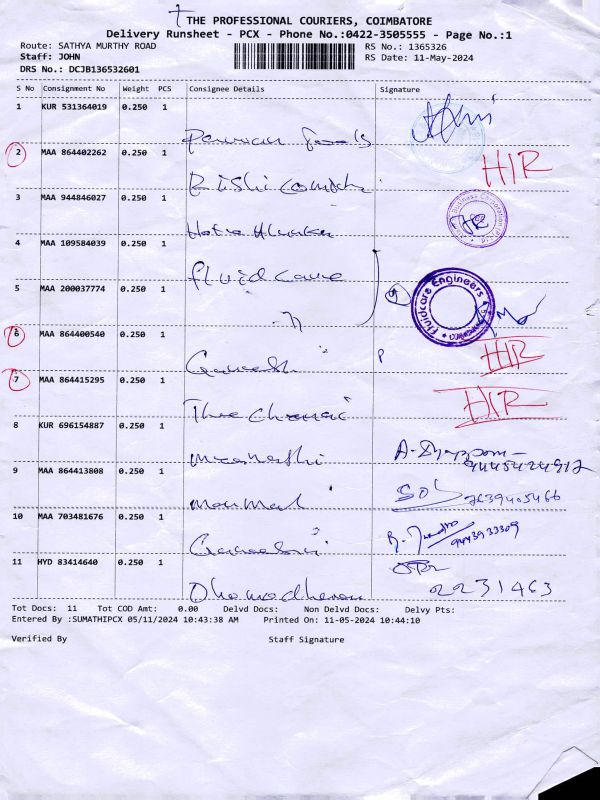 THE PROFESSIONAL COURIERS, COIMBATORE
Delivery Runsheet - PCX - Phone No.:0422-3505555 - Page No.:1
Route: SATHYA MURTHY ROAD RS No.: 1365326
Staff: JOHN RS Date: 11-May-2024
DRS No.: DCJB136532601
S No Consignment No Weight PCS Consignee Details Signature
1 KUR 531364019 0.250 1
2 MAA 864402262 0.250 1 H/R
Rishi
3 MAA 944846027 0.250 1
4 MAA 109584039 0.250 1
fluid care
5 MAA 200037774 0.250 1 Fluidcare Engineers
6 MAA 864400540 0.250 1 P H/R
Ganesh
7 MAA 864415295 0.250 1 H/R
The Chennai
8 KUR 696154887 0.250 1
Meenakshi 9445424917
9 MAA 864413808 0.250 1
7639405466
10 MAA 703481676 0.250 1
9443933309
11 HYD 83414640 0.250 1
2231463
Tot Docs: 11 Tot COD Amt: 0.00 Delvd Docs: Non Delvd Docs: Delvy Pts:
Entered By :SUMATHIPCX 05/11/2024 10:43:38 AM Printed On: 11-05-2024 10:44:10
Verified By Staff Signature